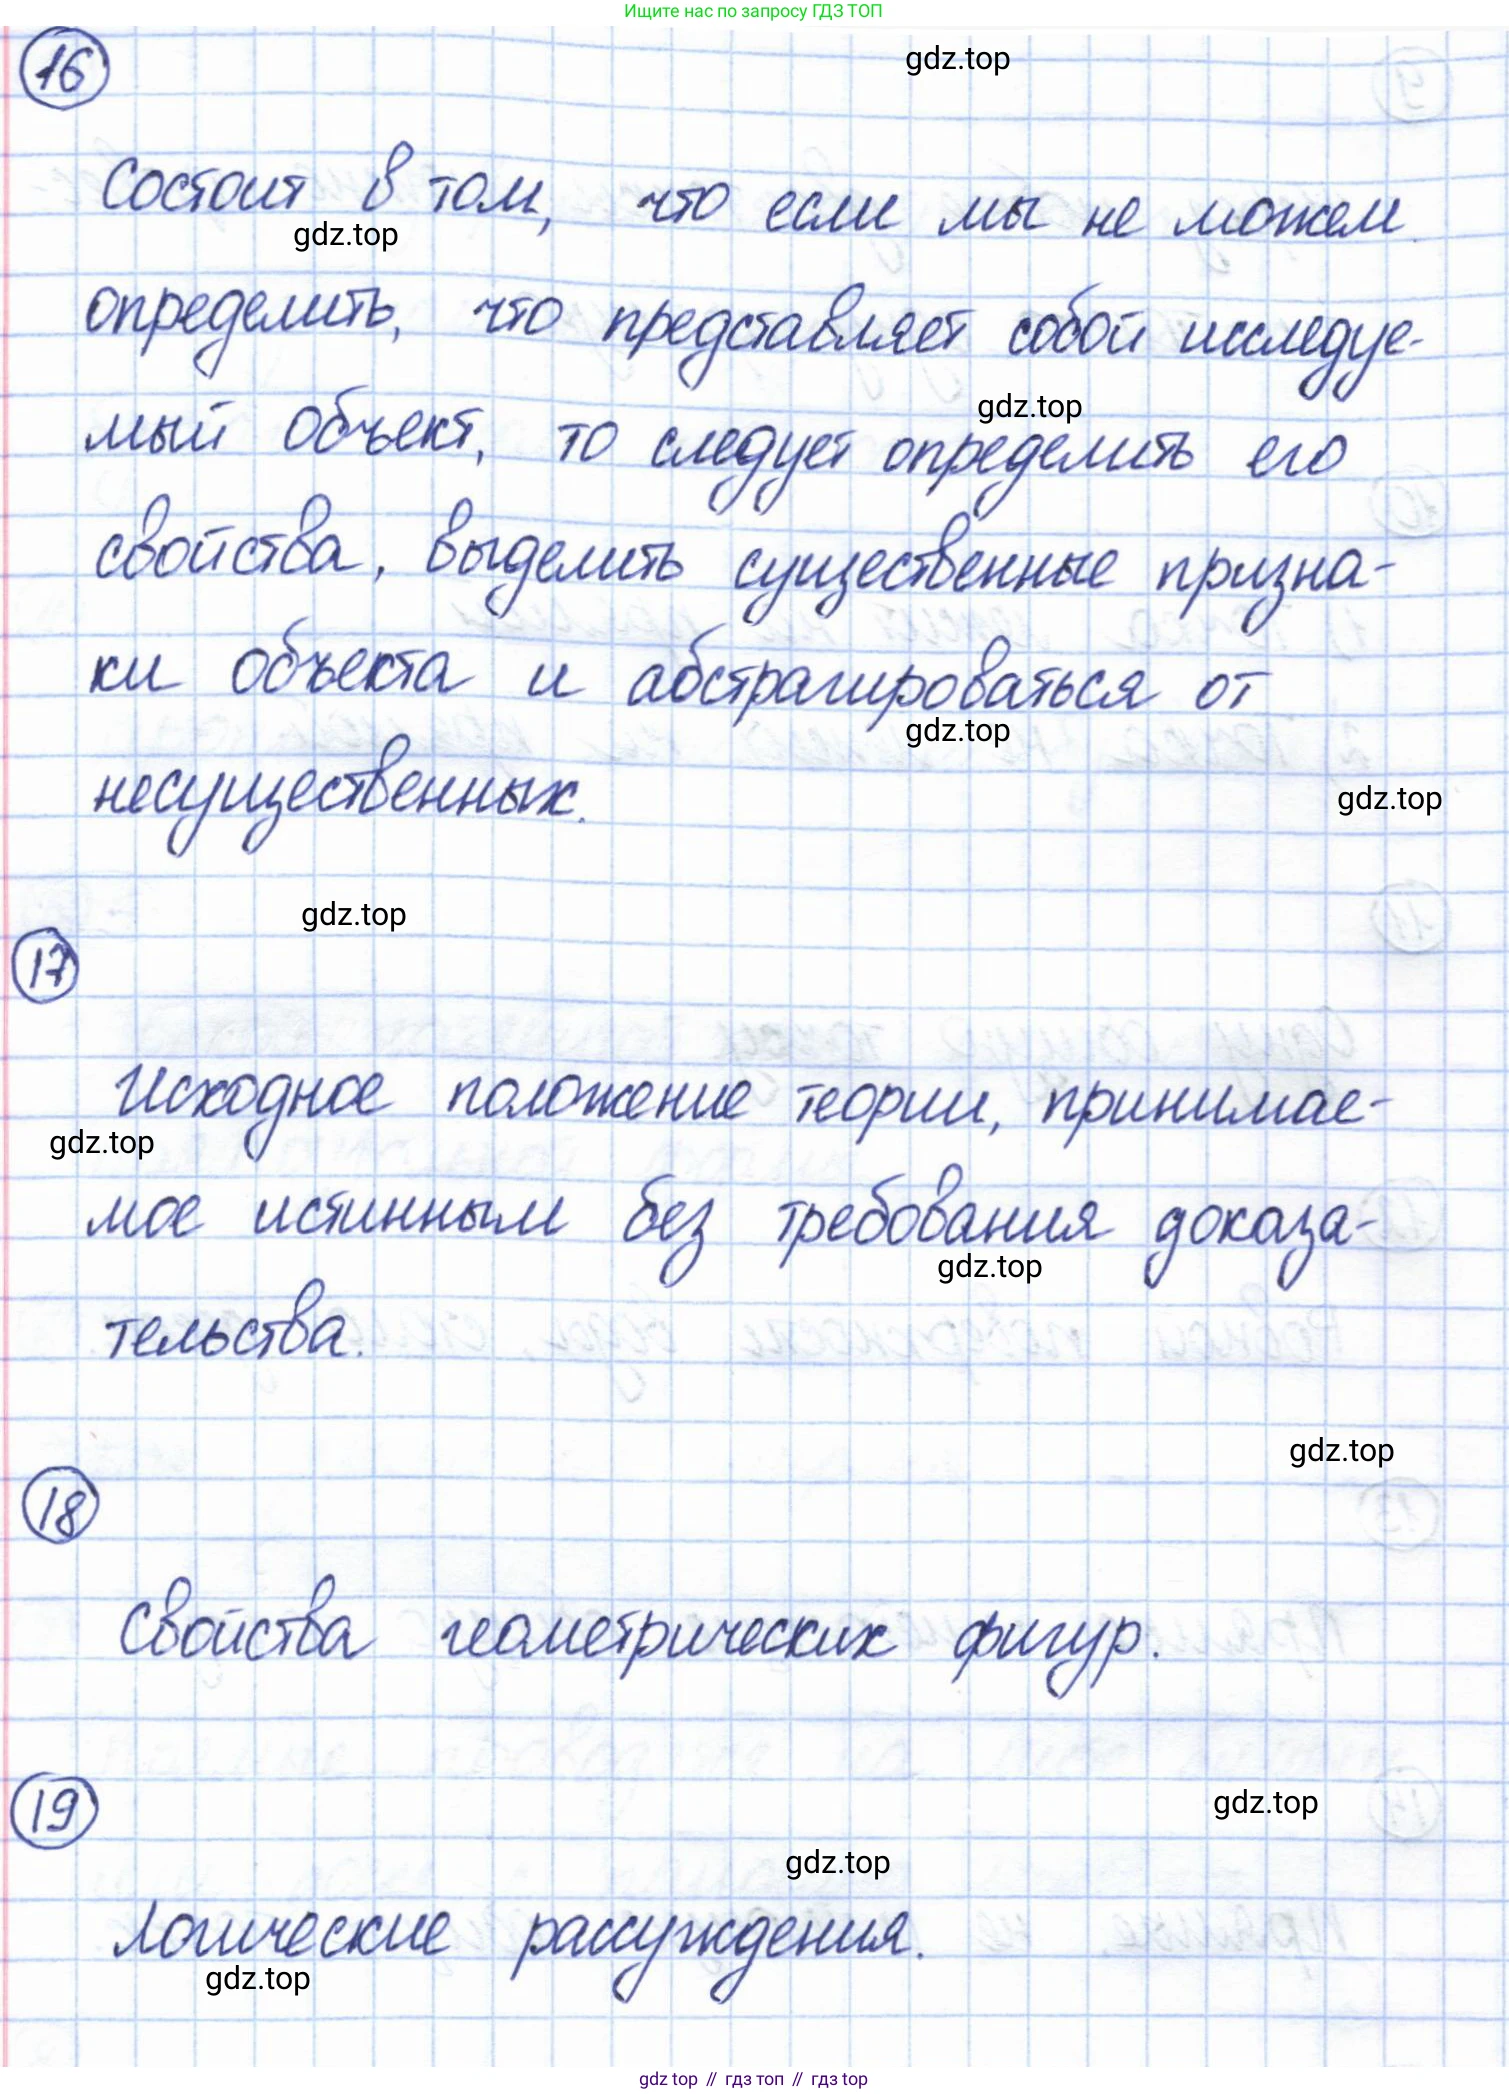 Ищите нас по запросу ГДЗ ТОП
16
gdz.top
Состоит в том, что если мы не можем
gdz.top
определить, что представляет собой исследуе-
gdz.top
мый объект, то следует определить его
свойства, выделить существенные призна-
ки объекта и абстрагироваться от
gdz.top
несущественных.
gdz.top
gdz.top
17
Исходное положение теории, принимае-
gdz.top
мое истинным без требования доказа-
gdz.top
тельства.
gdz.top
18
Свойства геометрических фигур.
19
gdz.top
gdz.top
Логические рассуждения.
gdz.top
gdz top // гдз топ // гдз top